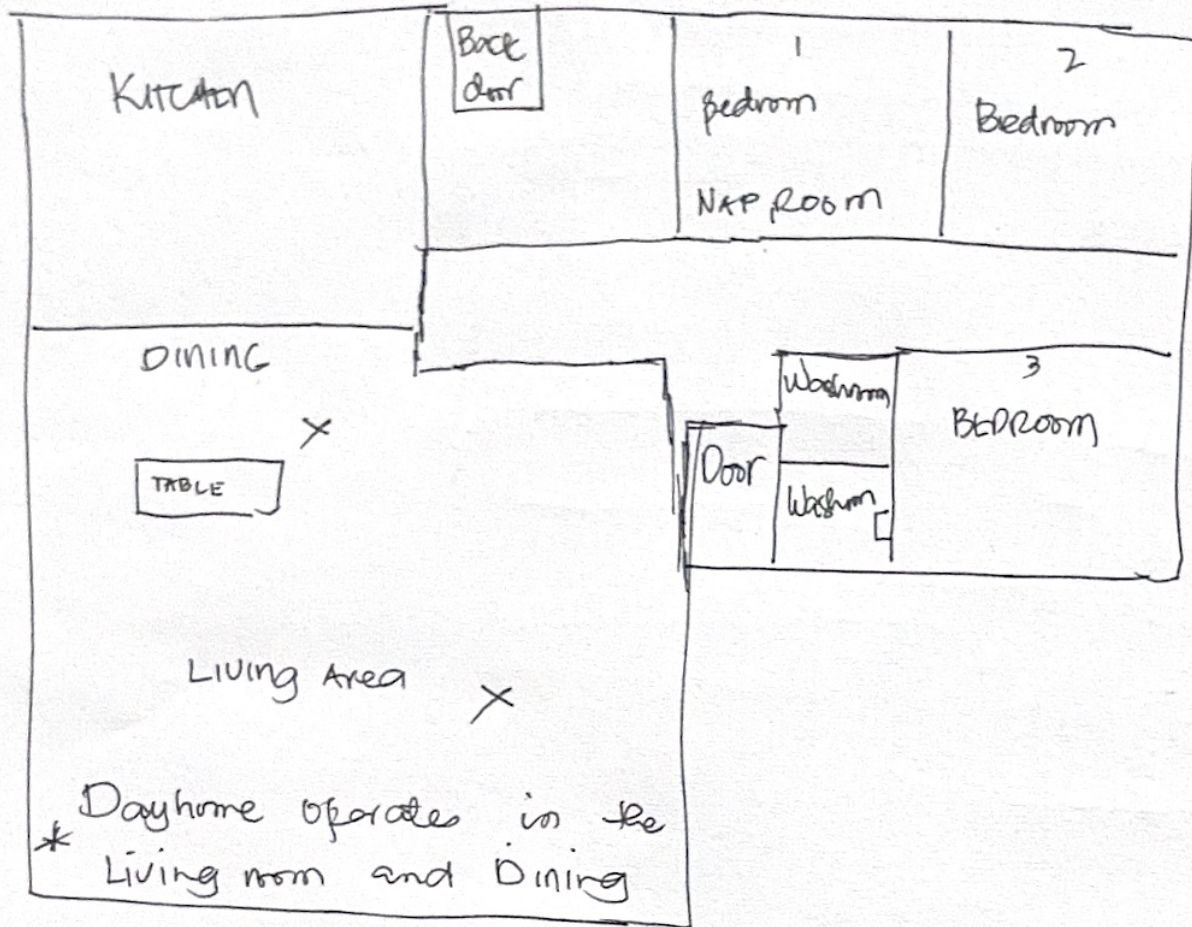 KITCHEN
Back
door
1
Bedroom
NAP ROOM
2
Bedroom
DINING
TABLE
Door
Washroom
Washroom
3
BEDROOM
Living Area
* Dayhome operates in the
Living room and Dining